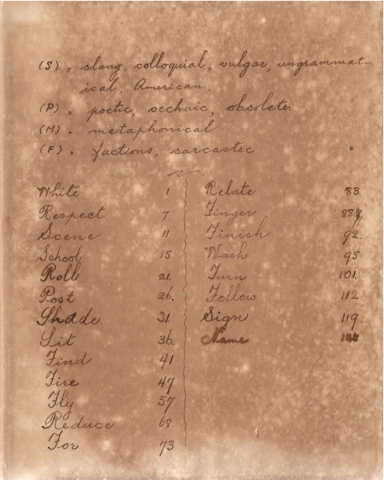 (S), slang, colloquial, vulgar ungrammat-
ical, American.
(P), poetic, archaic, obsolete
(M), metaphorical
(F), factious, sarcastic
White 1
Respect 7
Scene 11
School 15
Roll 21
Post 26
Shade 31
Sit 36
Find 41
Fire 47
Fly 57
Reduce 68
For 73
Relate 83
Finger
Finish 92
Wash 95
Turn 101
Follow 112
Sign 119
Name